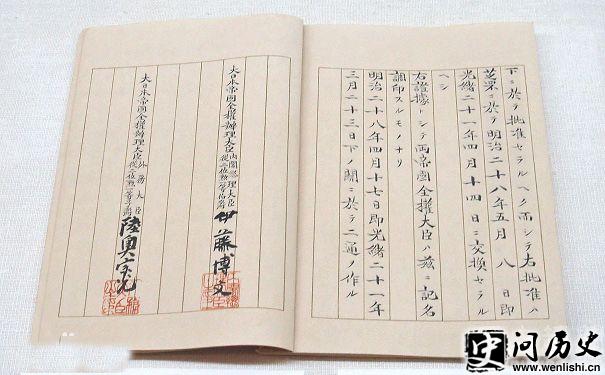 下ニ於テ批准セラルヘク而シテ右批准ハ
芝罘ニ於テ明治二十八年五月八日即
光緒二十一年四月十四日ニ交換セラル
ヘシ
右證據トシテ兩帝國全權大臣ハ茲ニ記名
調印スルモノナリ
明治二十八年四月十七日即光緒二十一年
三月二十三日下ノ關ニ於テ二通ヲ作ル
大日本帝國全權辦理大臣 內閣總理大臣從二位勳一等伯爵 伊藤博文
大日本帝國全權辦理大臣 外務大臣從二位勳一等子爵 陸奥宗光
史 问历史
www.wenlishi.cn